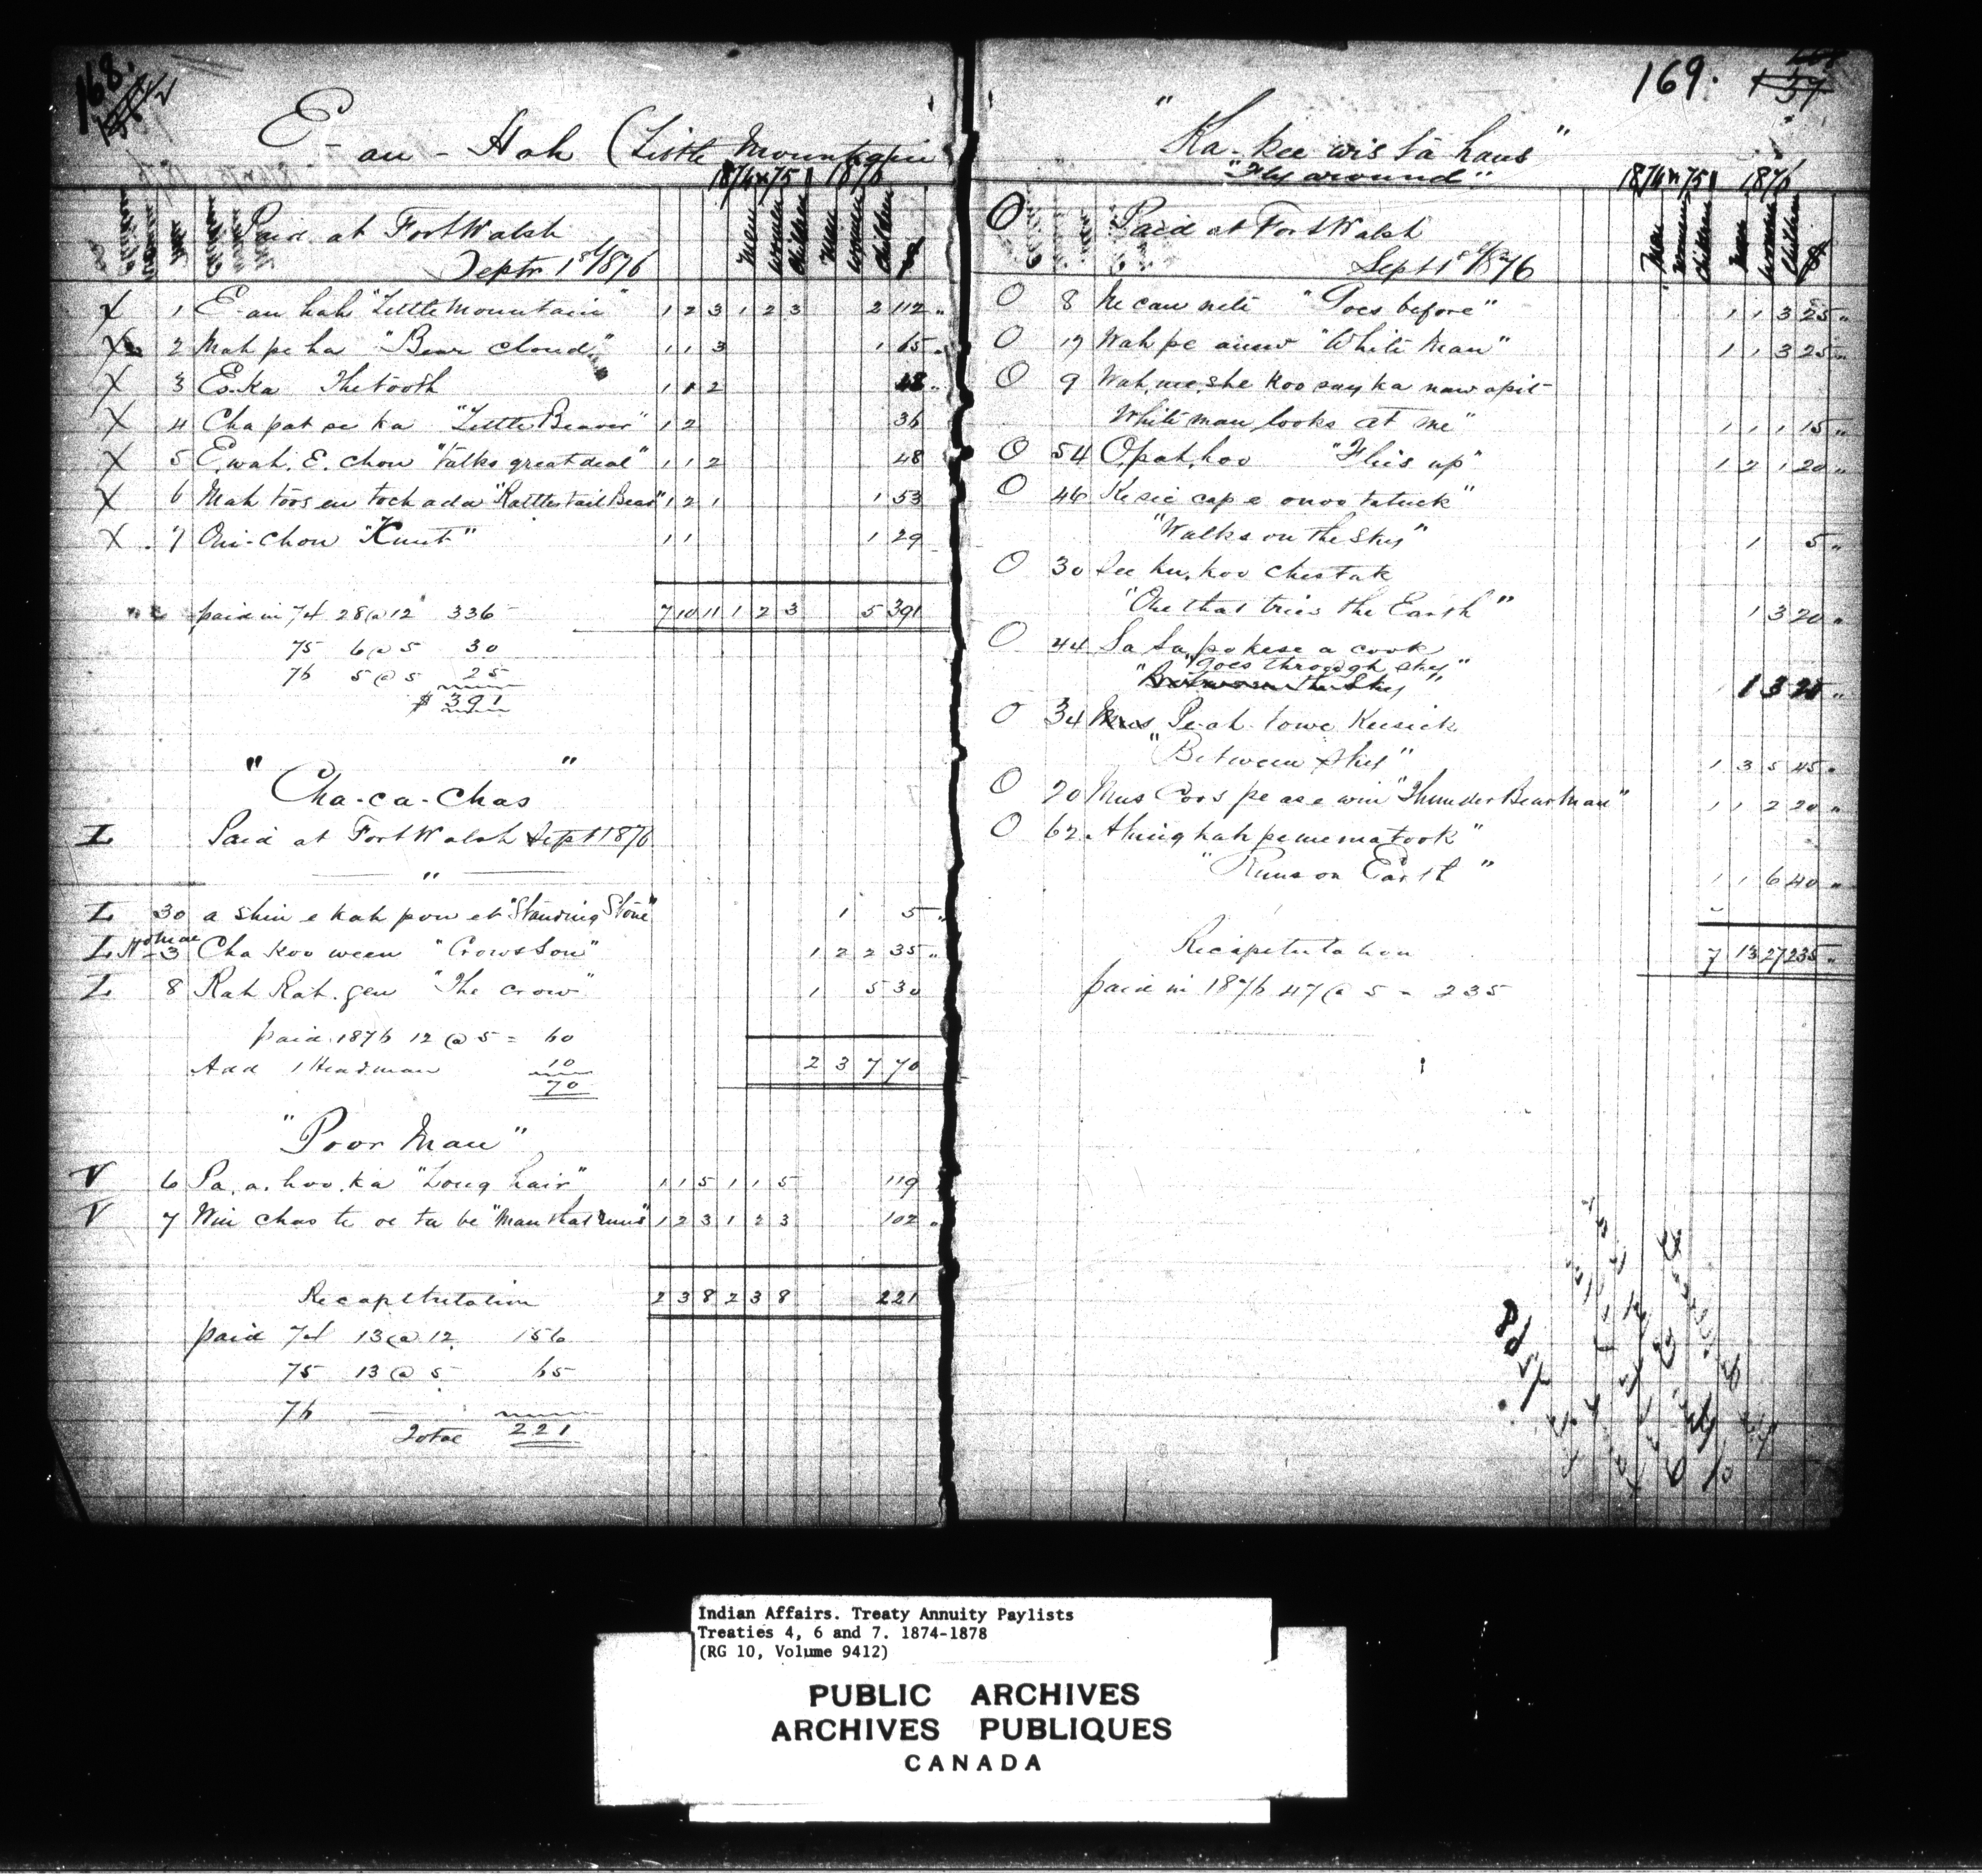 168.
E-au-Hah (Little Mountain
1874 & 75 1876
Paid at Fort Walsh
Septr 1st 1876
Men Women Children Men Women Children $
X 1 E-au hah "Little Mountain" 1 2 3 1 2 3 2 112 "
X 2 Mah pe ha "Bear Cloud" 1 1 3 1 65 "
X 3 Es.Ka The tooth 1 1 2 48 "
X 4 Cha pat se ka "Little Beaver" 1 2 36
X 5 E. wah. E. chou "Talks great deal" 1 1 2 48
X 6 Mah toos en toch ada "Rattles tail Bear" 1 2 1 1 53
X 7 Oni-chou 1 1 1 29
paid in 74 28 @ 12 336
7 10 11 1 2 3 5 391
75 6 @ 5 30
76 5 @ 5 25
$ 391
"Cha-ca-chas"
L Paid at Fort Walsh Sept 1876
"
L 30 a shin e kah pow et "Standing Stone" 1 5 "
L 3 Cha koo ween "Crows Son" 1 2 2 35 "
L 8 Kah Kah. gen "The Crow" 1 5 30
paid 1876 12 @ 5 = 60
Add 1 Headman 10
2 3 7 70
70
"Poor Man"
V 6 Pa. a. hoo. ka "Long hair" 1 1 5 1 1 5 119
V 7 Win chas te oe ta be "Man that runs" 1 2 3 1 2 3 102 "
Recapitulation 2 3 8 2 3 8 221
paid 74 13 @ 12 156
75 13 @ 5 65
76 —
Total 221
169. 137
"Ka-kee wis ta haus"
"Fly around"
1874 & 75 1876
O Paid at Fort Walsh
Sept 1st 1876
Men Women Children Men Women Children $
O 8 Ne can nete "Goes before" 1 1 3 25 "
O 19 Wah pe ainew "White Man" 1 1 3 25 "
O 9 Wah. me. she koo say ka naw apit
White man looks at me" 1 1 1 15 "
O 54 O.pah.hoo "Flies up" 1 2 1 20 "
O 46 Kesic cap e onoo tatuck"
"Walks on the Sky" 1 5 "
O 30 koo chestak
"One that tries the Earth" 1 3 20 "
O 44 Sa Sa.pokese a cook
"Goes through sky"
"Between the Sky" 1 3 "
O 34 Pe-ah-towe Keesick
"Between Sky" 1 3 5 45 "
O 20 Mus Coos pe ase win "Thunder Bear Man" 1 1 2 20 "
O 62 hah pemematook"
"Runs on Earth" 1 1 6 40 "
Recapitulation 7 13 27 235 "
paid in 1876 47 @ 5 = 235
Indian Affairs. Treaty Annuity Paylists
Treaties 4, 6 and 7. 1874-1878
(RG 10, Volume 9412)
PUBLIC ARCHIVES
ARCHIVES PUBLIQUES
CANADA